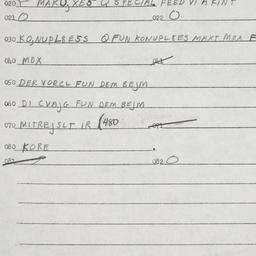 020 MAKU, XES Q SPECIAL FEED VI A KINT
021 O 022 O
030 KQNUPLEESS Q FUN KONUPLEES MAKT MRA
040 MDX 041
050 DER VORCL FUN DEM BEJM
060 DI CVAJG FUN DEM BEJM
070 MITREJSLT IR (480 071
080 KORE
081 082 O